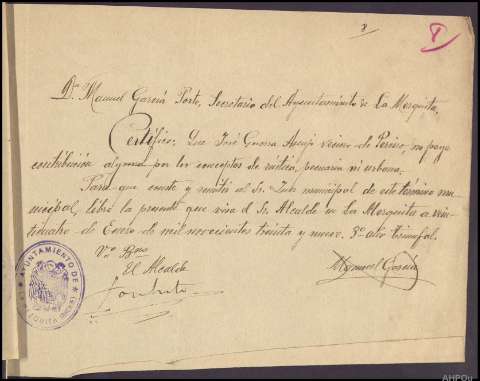 8
Dn. Manuel García Porto, Secretario del Ayuntamiento de La Mezquita.
Certifico: Que José Guerra Asejo vecino de Pereiro, no paga
contribución alguna por los conceptos de rústica, pecuaria ni urbana.
Para que conste y remitir al Sr. Juez municipal de este término mu-
nicipal, libro la presente que visa el Sr. Alcalde en La Mezquita a vein-
ticuatro de Enero de mil novecientos treinta y nueve. 3er. año Triunfal.
Vº Bno
El Alcalde
Manuel García
AYUNTAMIENTO DE
LA MEZQUITA (ORENSE)
AHPOu